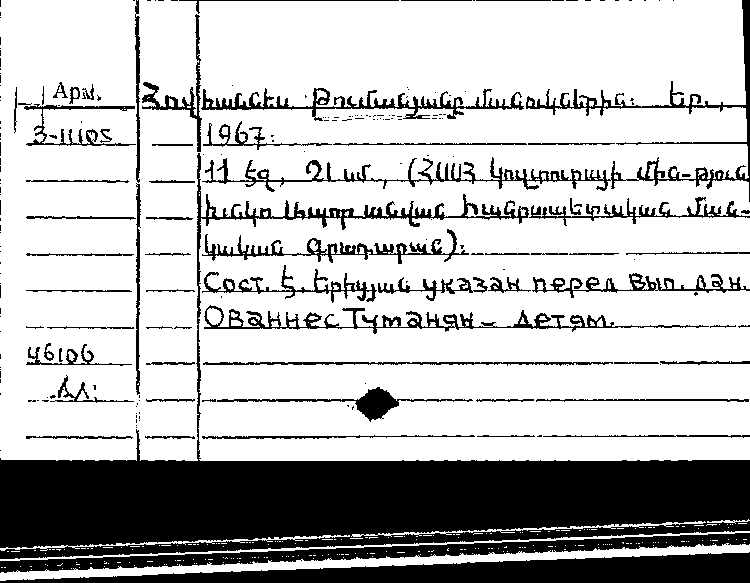 Арм. Հովհաննես Թումանյանը մանուկներին: Եր.,
3-11105 1967:
11 էջ, 21 սմ, (ՀՍՍՀ կուլտուրայի մին-թյուն
Խնկո Ապոր անվան հանրապետական ման-
կական գրադարան):
Сост. Է. Երիցյան указан перед вып. дан.
Ованнес Туманян – детям.
46106